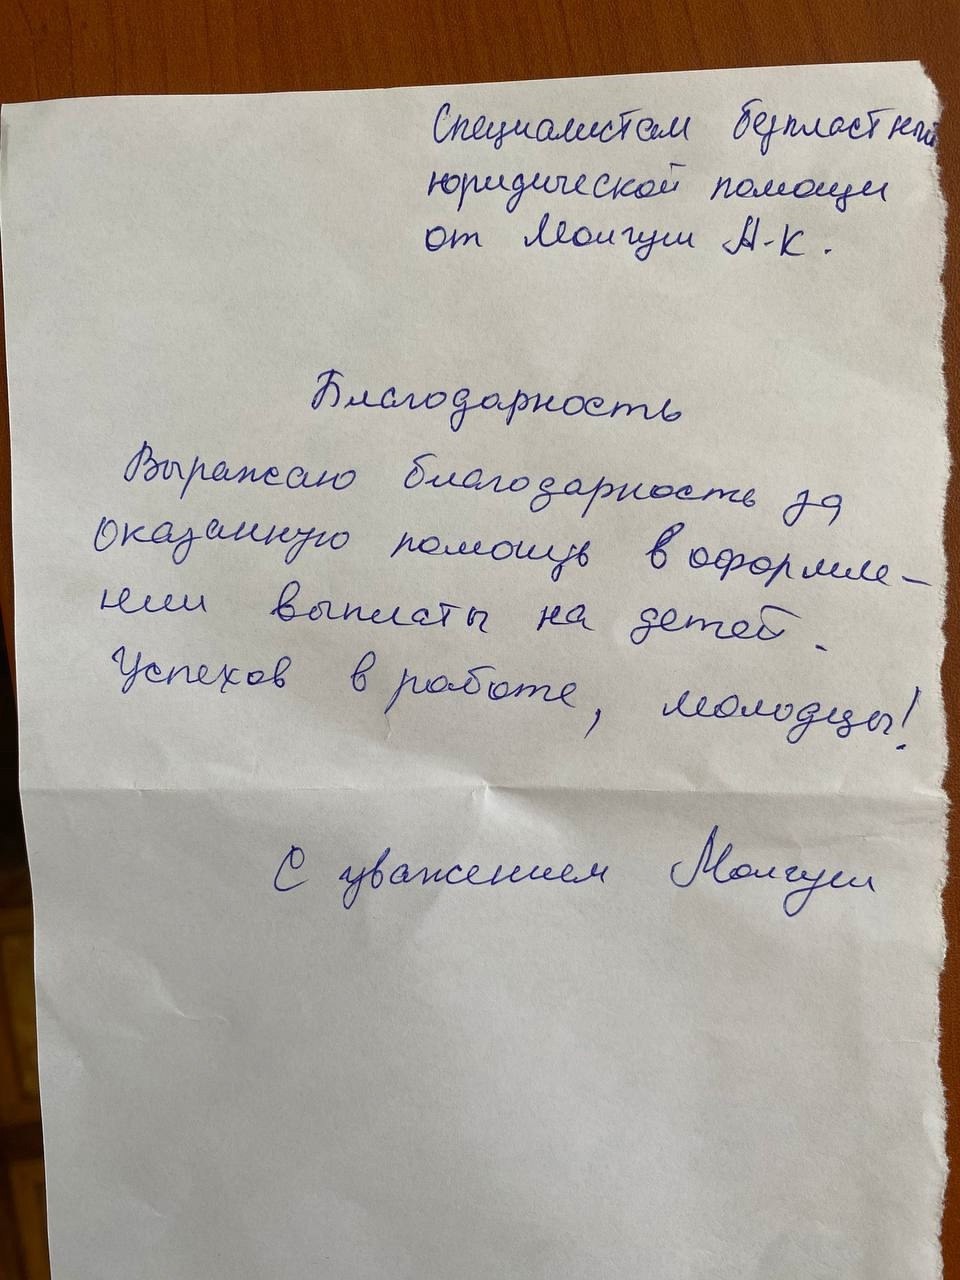 Специалистам безпластной
юридической помощи
от Монгуш А-К.
Благодарность
Выражаю благодарность за
оказанную помощь в оформле-
нии выплаты на детей.
Успехов в работе, молодцы!
С уважением Монгуш